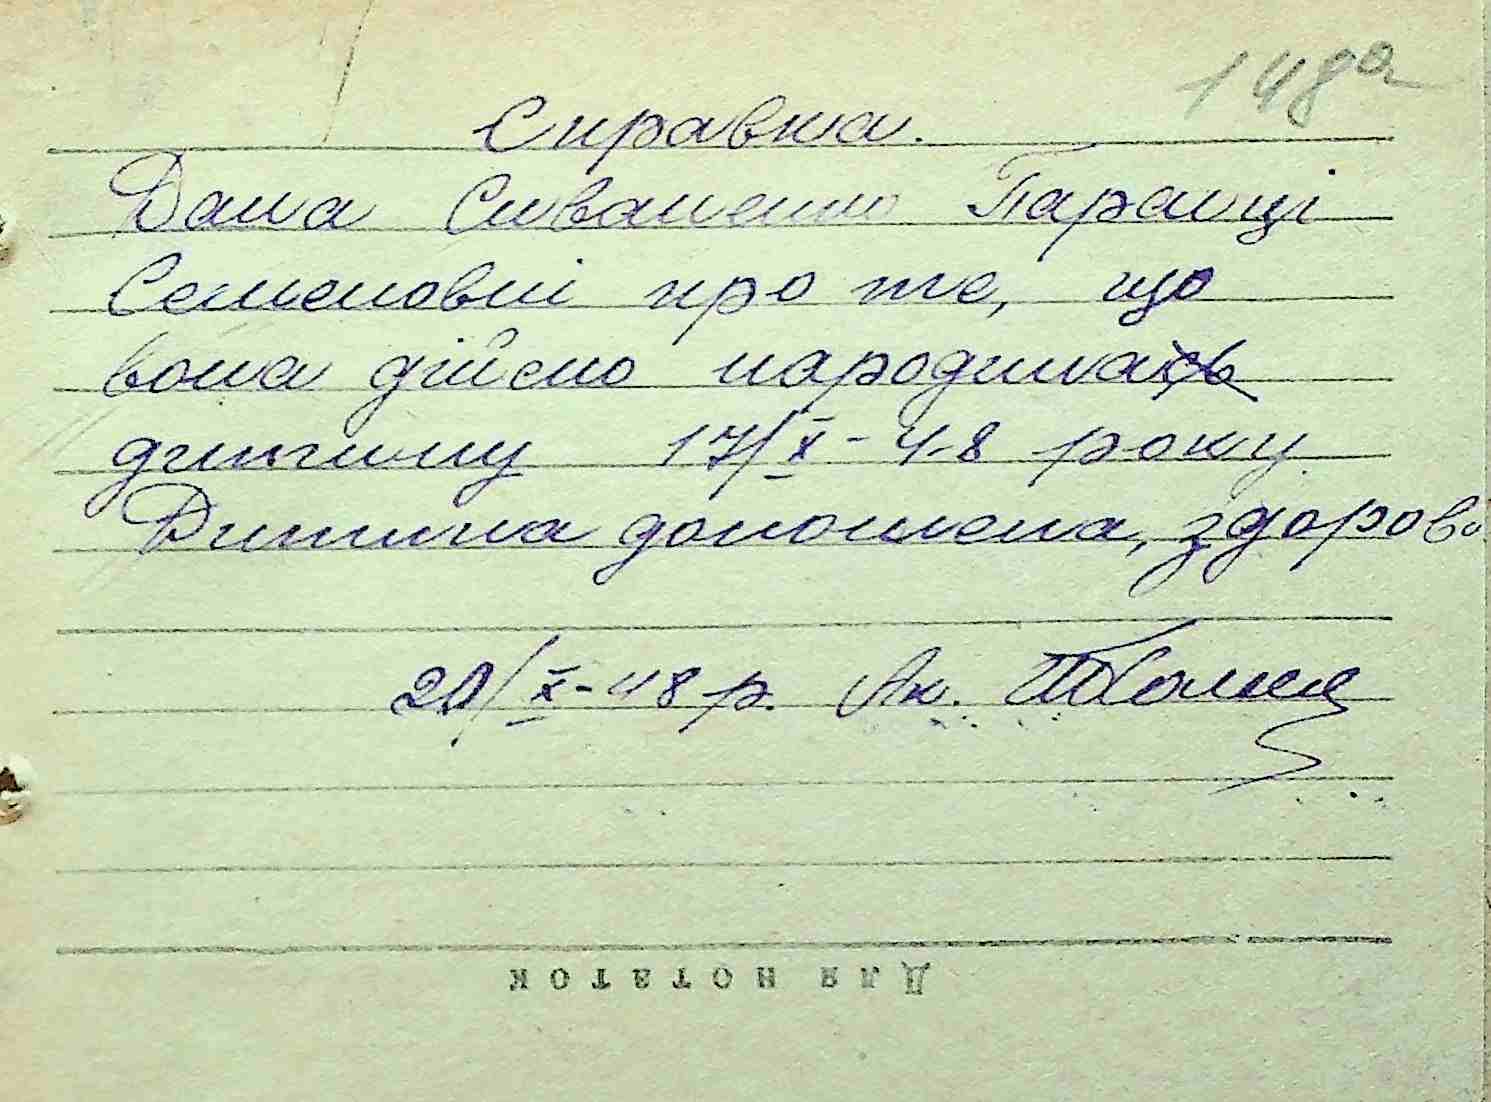 148а
Справка.
Дана Сиваненко Параці
Семеновні про те, що
вона дійсно народила
дитину 17/X-48 року
Дитина доношена, здорова
20/X-48 р. Ак.
Для нотаток